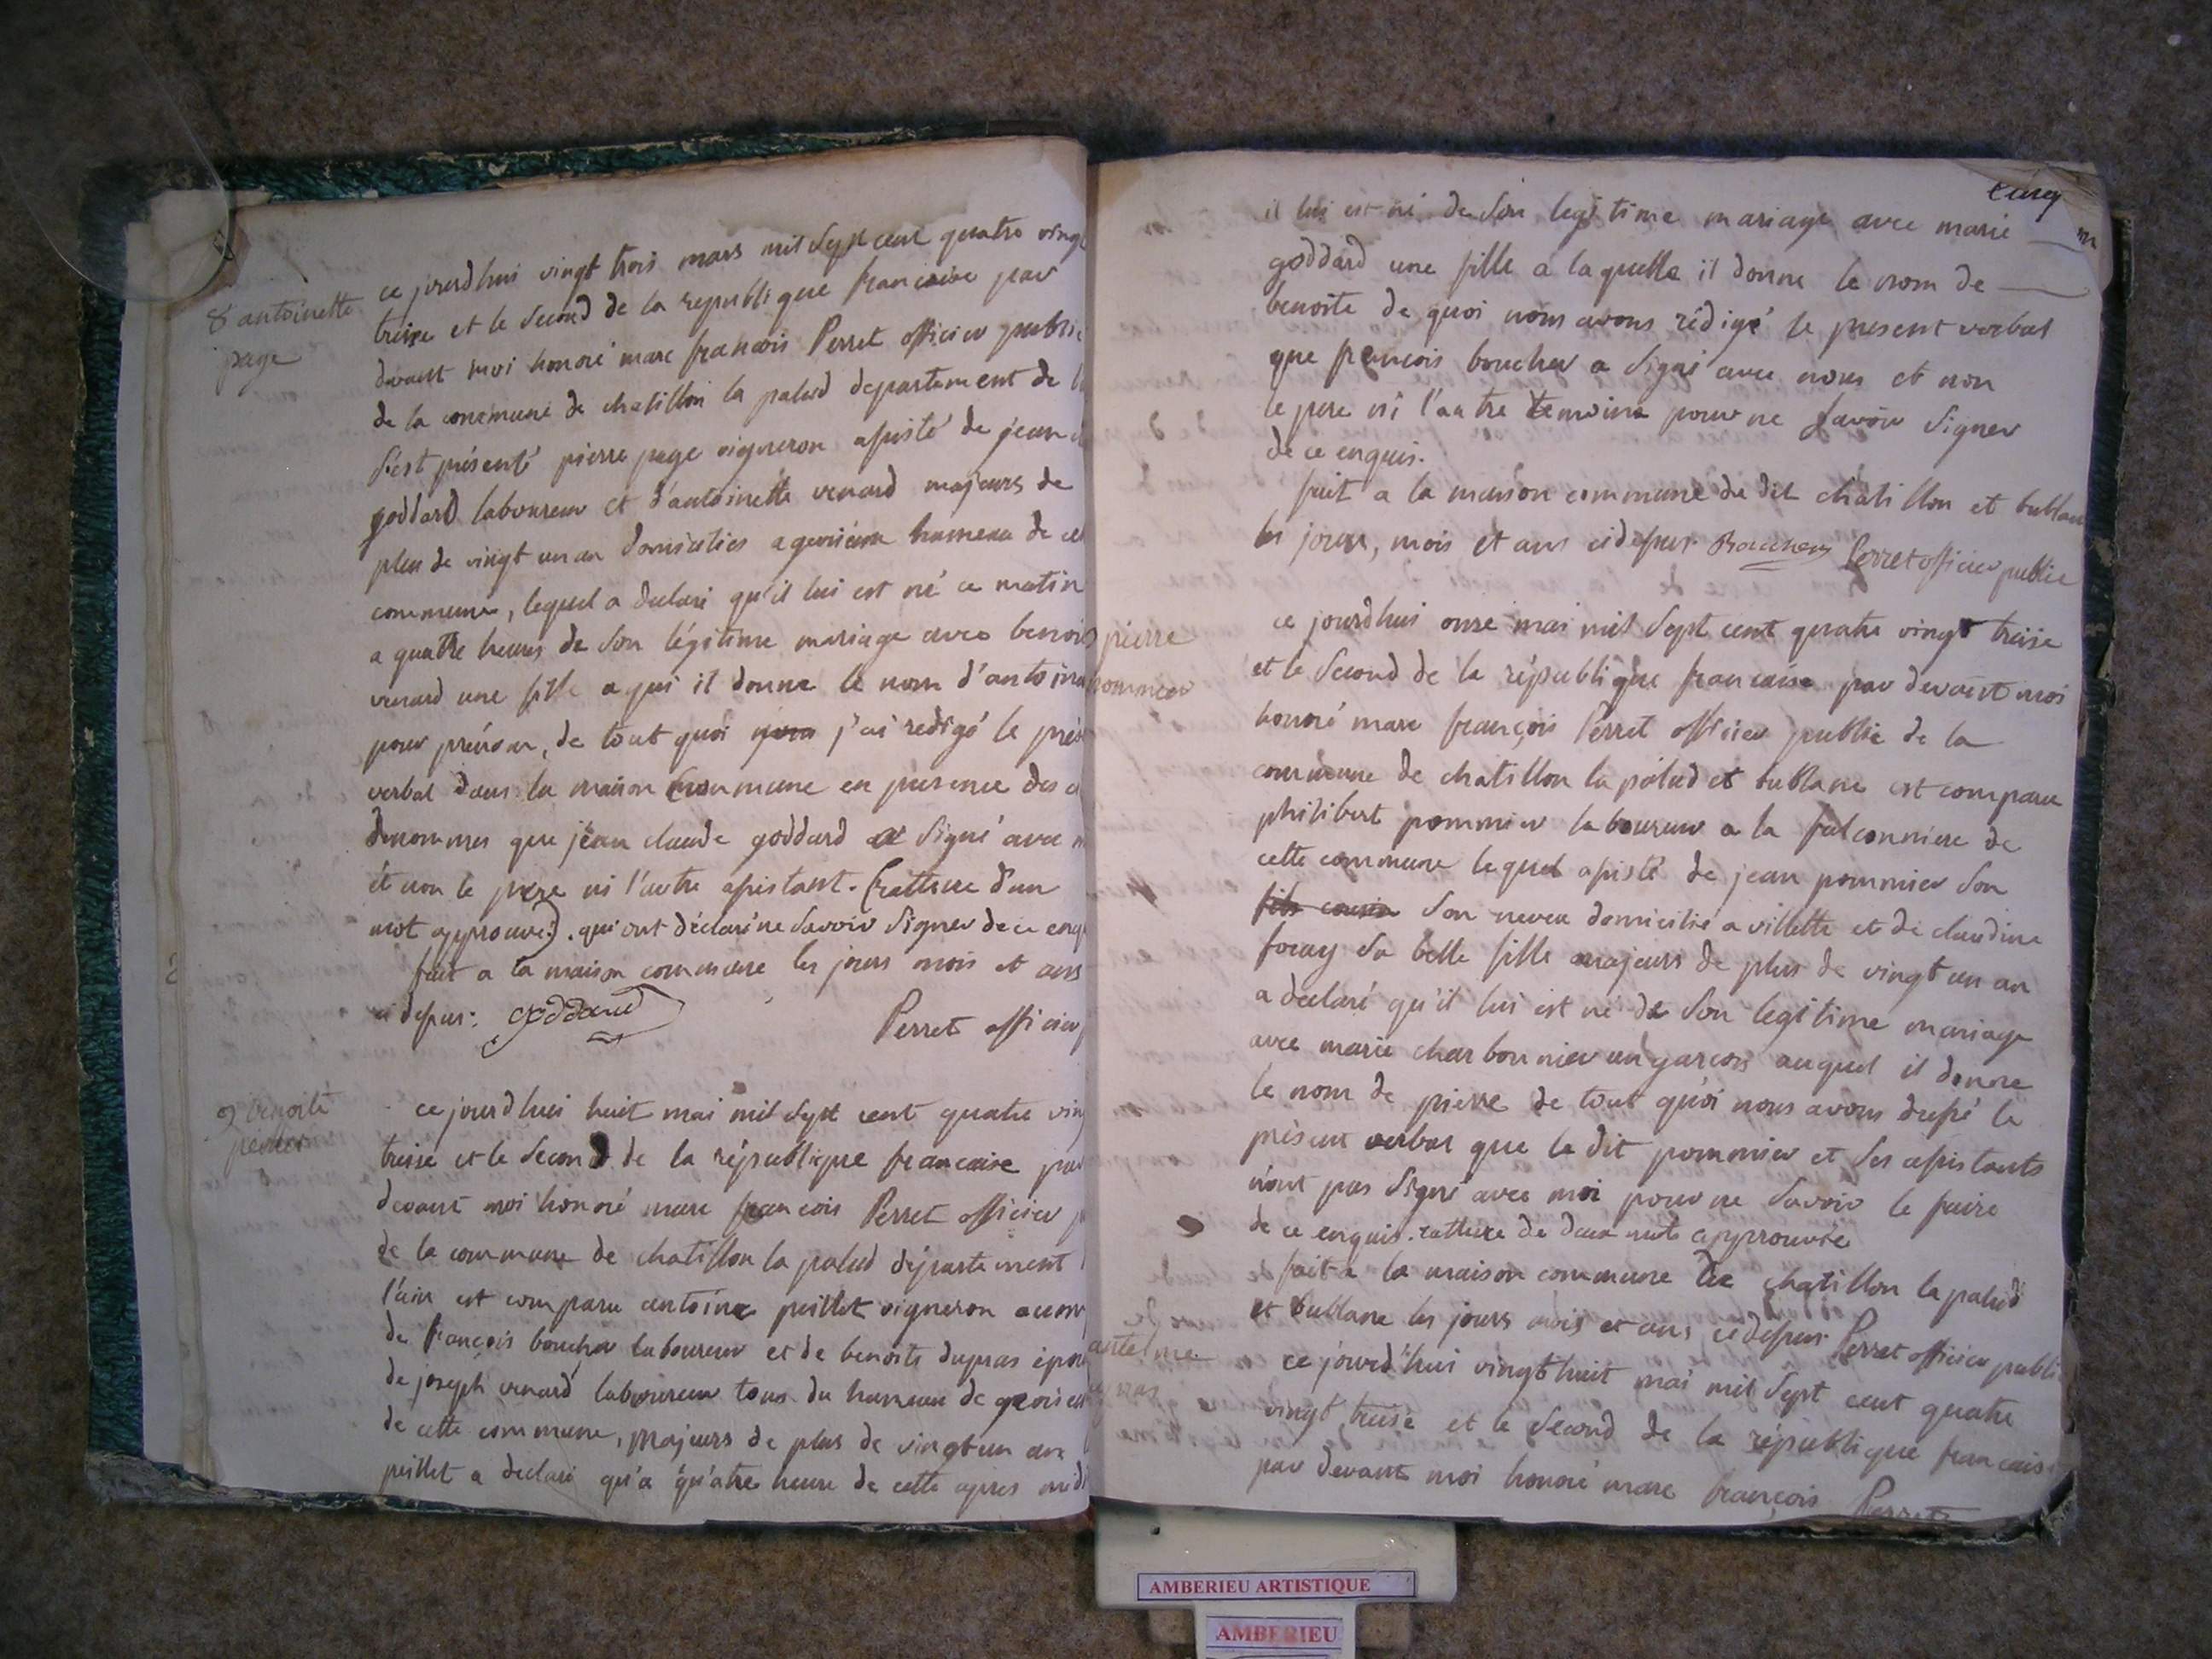 8 antoinette
page
ce jourdhui vingt trois mars mil sept cent quatre vingt
treise et le second de la republique francoise par
devant moi honoré marc francois Perret officier public
de la commune de chatillon la palud departement de l
s'est présenté pierre page vigneron assisté de jean
goddard laboureur et d'antoinette venard majeurs de
plus de vingt un an domicilies a hameau de
commune, lequel a declaré qu'il lui est né ce matin
a quatre heures de son légitime mariage avec benoi
venard une fille a qui il donne le nom d'antoine
pour prénom, de tout quoi j'ai redigé le prés
verbal dans la maison commune en presence des
denommes que jean claude goddard a signé avec
et non le pere ni l'autre assistant. (rature d'un
mot approuvé). qui ont déclaré ne savoir signer de ce enq
fait a la maison commune les jours mois et ans
ci dessus: goddard
Perret officier
9 benoite
peillet
ce jourdhui huit mai mil sept cent quatre vin
treise et le second de la république francaise par
devant moi honoré marc francois Perret officier p
de la commune de chatillon la palud département
l'ain est comparu antoine peillet vigneron
de françois boucher laboureur et de benoite dupras épou
de joseph venard laboureur tous du hameau de
de cette commune, majeurs de plus de vingt un an
peillet a declaré qu'a quatre heure de cette apres midi
il lui est né de son legitime mariage avec marie
goddard une fille a laquelle il donne le nom de
benoite de quoi nous avons rédigé le present verbal
que francois boucher a signé avec nous et non
le pere ni l'autre temoins pour ne savoir signer
de ce enquis.
fait a la maison commune du dit chatillon et bublane
les jours, mois et ans cidessus. Boucher Perret officier public
pierre
pommier
ce jourdhui onse mai mil sept cent quatre vingt treise
et le second de la république francaise par devant moi
honoré marc françois Perret officier public de la
commune de chatillon la palud et bublane est comparu
philibert pommier laboureur a la falconniere de
cette commune lequel assisté de jean pommier son
fils cousin son neveu domicilié a villette et de claudine
foray sa belle fille majeurs de plus de vingt un an
a declaré qu'il lui est né de son legitime mariage
avec marie charbonnier un garcon auquel il donne
le nom de pierre de tout quoi nous avons dressé le
présent verbal que le dit pommier et ses assistants
n'ont pas signé avec moi pour ne savoir le faire
de ce enquis. rature de deux mots approuvée
fait a la maison commune de chatillon la palud
et bublane les jours mois et ans cidessus. Perret officier publi
antelme
ce jourd'hui vingt huit mai mil sept cent quatre
vingt treise et le second de la république francais
par devant moi honoré marc françois Perret
AMBERIEU ARTISTIQUE
AMBERIEU